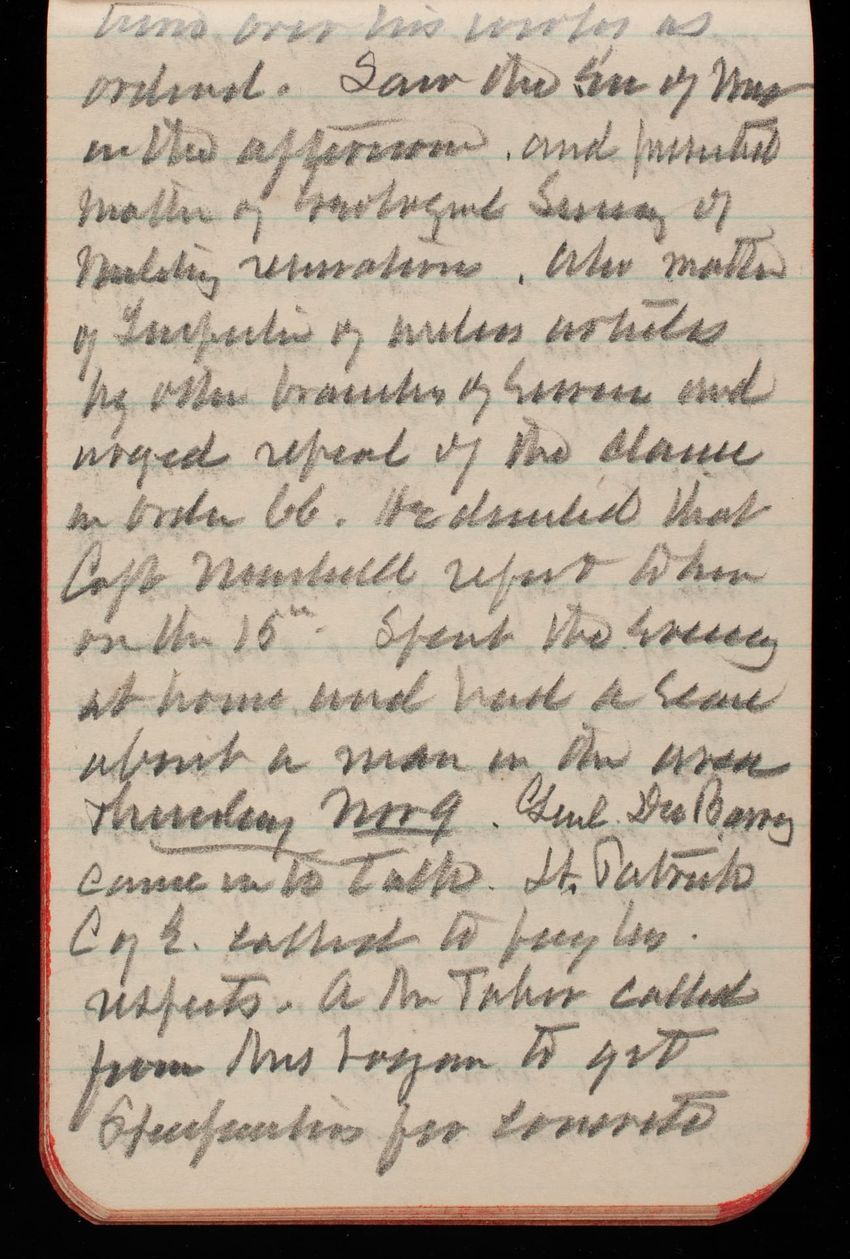 turn over his works as
ordered. Saw the Sec of War
in the afternoon, and presented
matter of Geological Survey of
Military reservations, also matter
of Inspection of articles
by other branches of Service and
urged repeal of the clause
in order 66. He decided that
Capt Marshall report to him
on the 15th. Spent the Evening
at home and had a Scare
about a man in the area
Thursday Nov 9. Genl Du Barry
came in to talk. Lt. Patrick
C of E. called to pay his
respects. A Mr Taber called
from Mrs Logan to get
Specifications for concrete